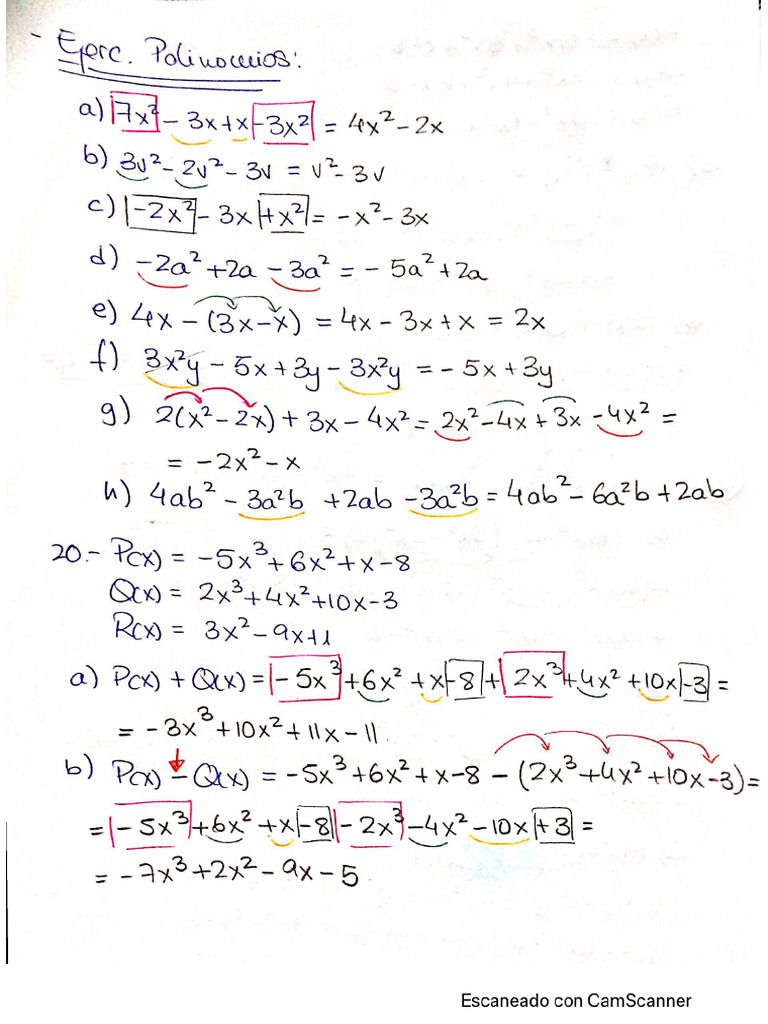 - Ejerc. Polinomios:
a) 7x² - 3x + x - 3x² = 4x² - 2x
b) 3v² - 2v² - 3v = v² - 3v
c) -2x² - 3x + x² = -x² - 3x
d) -2a² + 2a - 3a² = -5a² + 2a
e) 4x - (3x - x) = 4x - 3x + x = 2x
f) 3x²y - 5x + 3y - 3x²y = -5x + 3y
g) 2(x² - 2x) + 3x - 4x² = 2x² - 4x + 3x - 4x² =
= -2x² - x
h) 4ab² - 3a²b + 2ab - 3a²b = 4ab² - 6a²b + 2ab
20.- P(x) = -5x³ + 6x² + x - 8
Q(x) = 2x³ + 4x² + 10x - 3
R(x) = 3x² - 9x + 1
a) P(x) + Q(x) = -5x³ + 6x² + x - 8 + 2x³ + 4x² + 10x - 3 =
= -3x³ + 10x² + 11x - 11
b) P(x) - Q(x) = -5x³ + 6x² + x - 8 - (2x³ + 4x² + 10x - 3) =
= -5x³ + 6x² + x - 8 - 2x³ - 4x² - 10x + 3 =
= -7x³ + 2x² - 9x - 5
Escaneado con CamScanner